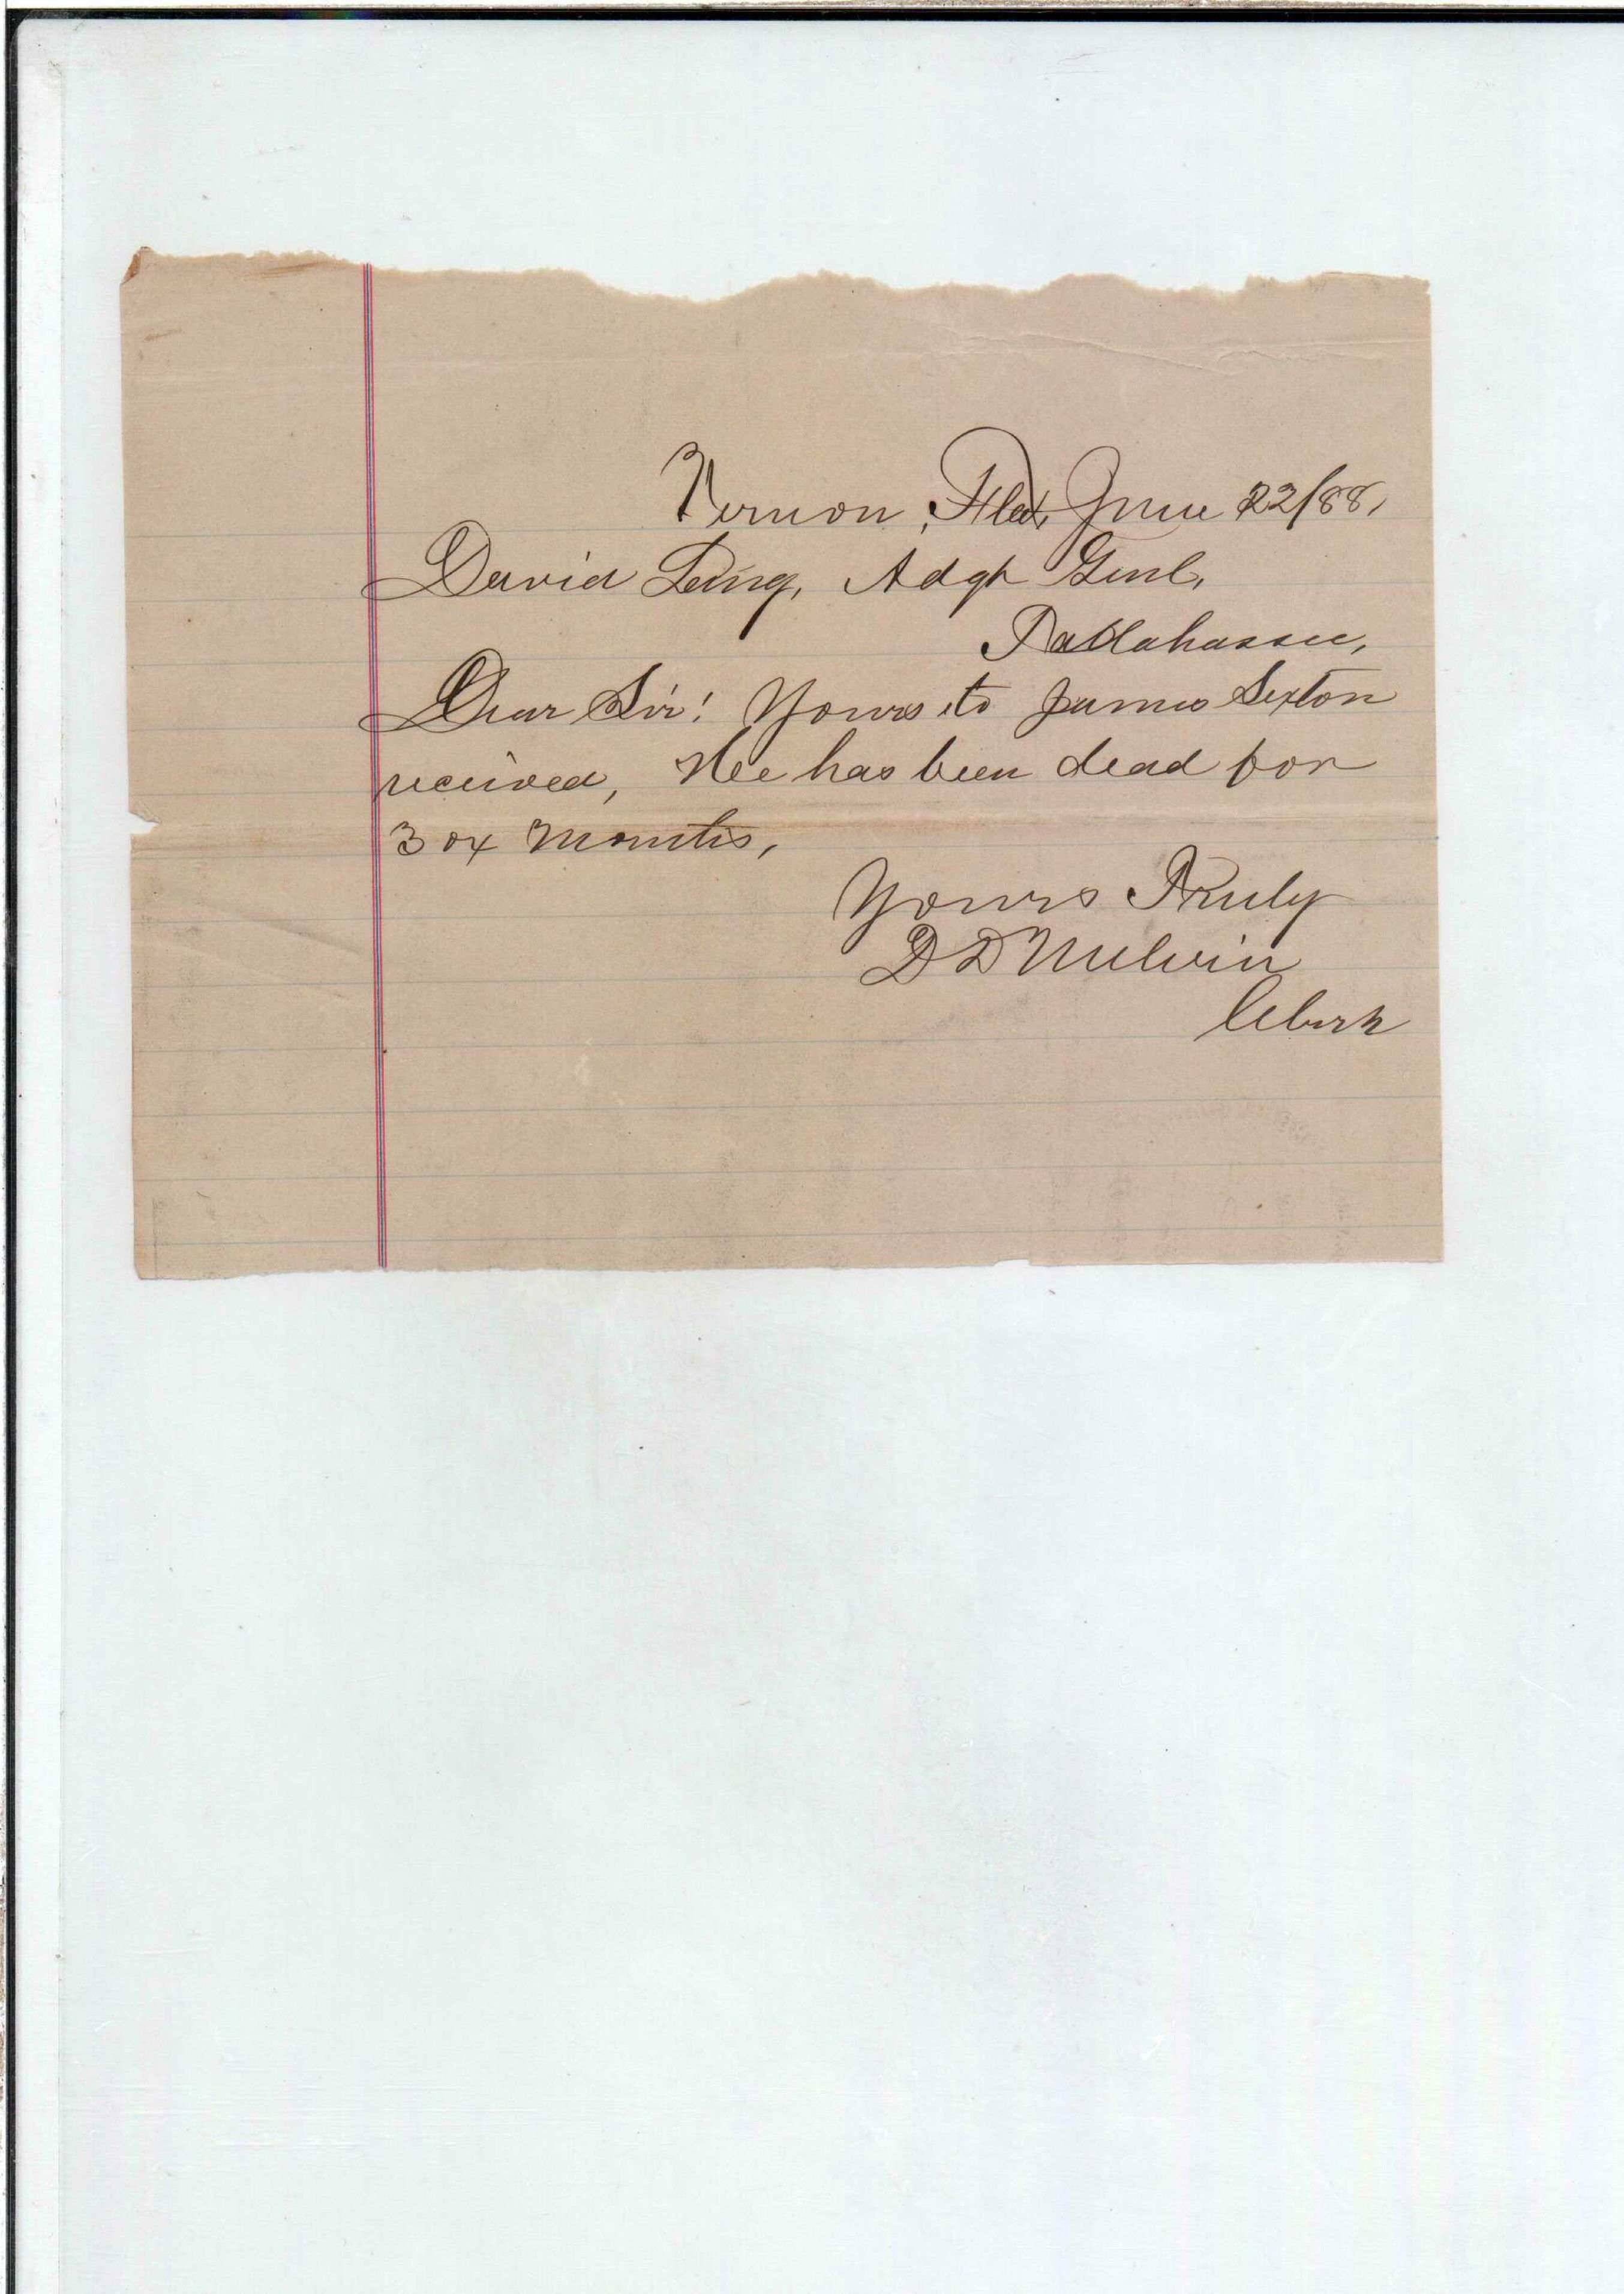 Vernon, Fla, June 22/88,
David Lang, Adgt Genl,
Tallahassee,
Dear Sir! Yours to James Sexton
received, He has been dead for
3 or 4 Months,
Yours Truly
D D Melvin
Clerk